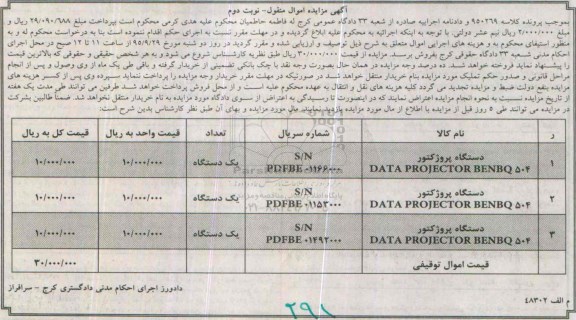 آگهی مزایده اموال منقول- نوبت دوم
بموجب پرونده کلاسه ۹۵۰۲۶۹ و دادنامه اجراییه صادره از شعبه ۳۳ دادگاه عمومی کرج له فاطمه حاطمیان محکوم علیه هدی کرمی محکوم است بپرداخت مبلغ ۲۹/۰۹۰/۶۸۸ ریال و
مبلغ ۲/۰۰۰/۰۰۰ ریال نیم عشر دولتی. با توجه به اینکه اجرائیه به محکوم علیه ابلاغ گردیده و در مهلت مقرر نسبت به اجرای حکم اقدام ننموده است بنا به درخواست محکوم له و به
منظور استیفای محکوم به و هزینه های اجرایی اموال متعلق به شرح ذیل توصیف و ارزیابی شده و مقرر گردید در روز دو شنبه مورخ ۹۵/۹/۲۹ از ساعت ۱۱ تا ۱۲ صبح در محل اجرای
احکام مدنی شعبه ۳۳ دادگاه حقوقی کرج بفروش برسد. مزایده از قیمت ۳۰/۰۰۰/۰۰۰ ریال طبق نظریه کارشناس شروع می شود و به هر شخص حقیقی و حقوقی که بالاترین قیمت
را پیشنهاد نماید فروخته خواهد شد. ده درصد وجه مزایده در همان حال بصورت وجه نقد یا چک بانکی تضمینی از خریدار گرفته و باقی طی یک ماه از وی وصول و پس از انجام
مراحل قانونی و صدور حکم تملیک مورد مزایده بنام خریدار منتقل خواهد شد در صورتیکه در مهلت مقرر خریدار وجه مزایده را پرداخت ننماید سپرده وی پس از کسر هزینه های
مزایده بنفع دولت ضبط و مزایده تجدید می گردد کلیه هزینه های نقل و انتقال به عهده محکوم علیه است و از محل فروش پرداخت خواهد شد طرفین می توانند طی مدت یک هفته
از تاریخ مزایده نسبت به نحوه انجام مزایده اعتراض نمایند که در اینصورت تا رسیدگی به اعتراض از سوی دادگاه مورد مزایده به نام خریدار منتقل نخواهد شد. ضمنا طالبین بشرکت
در مزایده می توانند طی ۵ روز قبل از مزایده با اطلاع از محل مورد مزایده بازدید نمایند. مال مورد مزایده و بهای آن طبق نظر کارشناس بدین شرح است:
ر نام کالا شماره سریال تعداد قیمت واحد به ریال قیمت کل به ریال
۱ دستگاه پروژکتور DATA PROJECTOR BENBQ ۵۰۴ S/N PDFBE ۰۱۱۶۶۰۰۰ یک دستگاه ۱۰/۰۰۰/۰۰۰ ۱۰/۰۰۰/۰۰۰
۲ دستگاه پروژکتور DATA PROJECTOR BENBQ ۵۰۴ S/N PDFBE ۰۱۱۵۳۰۰۰ یک دستگاه ۱۰/۰۰۰/۰۰۰ ۱۰/۰۰۰/۰۰۰
۳ دستگاه پروژکتور DATA PROJECTOR BENBQ ۵۰۴ S/N PDFBE ۰۱۴۹۲۰۰۰ یک دستگاه ۱۰/۰۰۰/۰۰۰ ۱۰/۰۰۰/۰۰۰
قیمت اموال توقیفی ۳۰/۰۰۰/۰۰۰
دادورز اجرای احکام مدنی دادگستری کرج - سرافراز
م الف ۴۸۳۰۲
۲۹۸